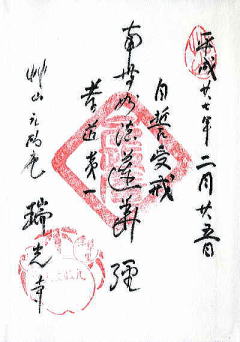 平成廿七年二月廿五日
自誓受戒
南無妙法蓮華経
孝道第一
艸山元政庵
瑞光寺